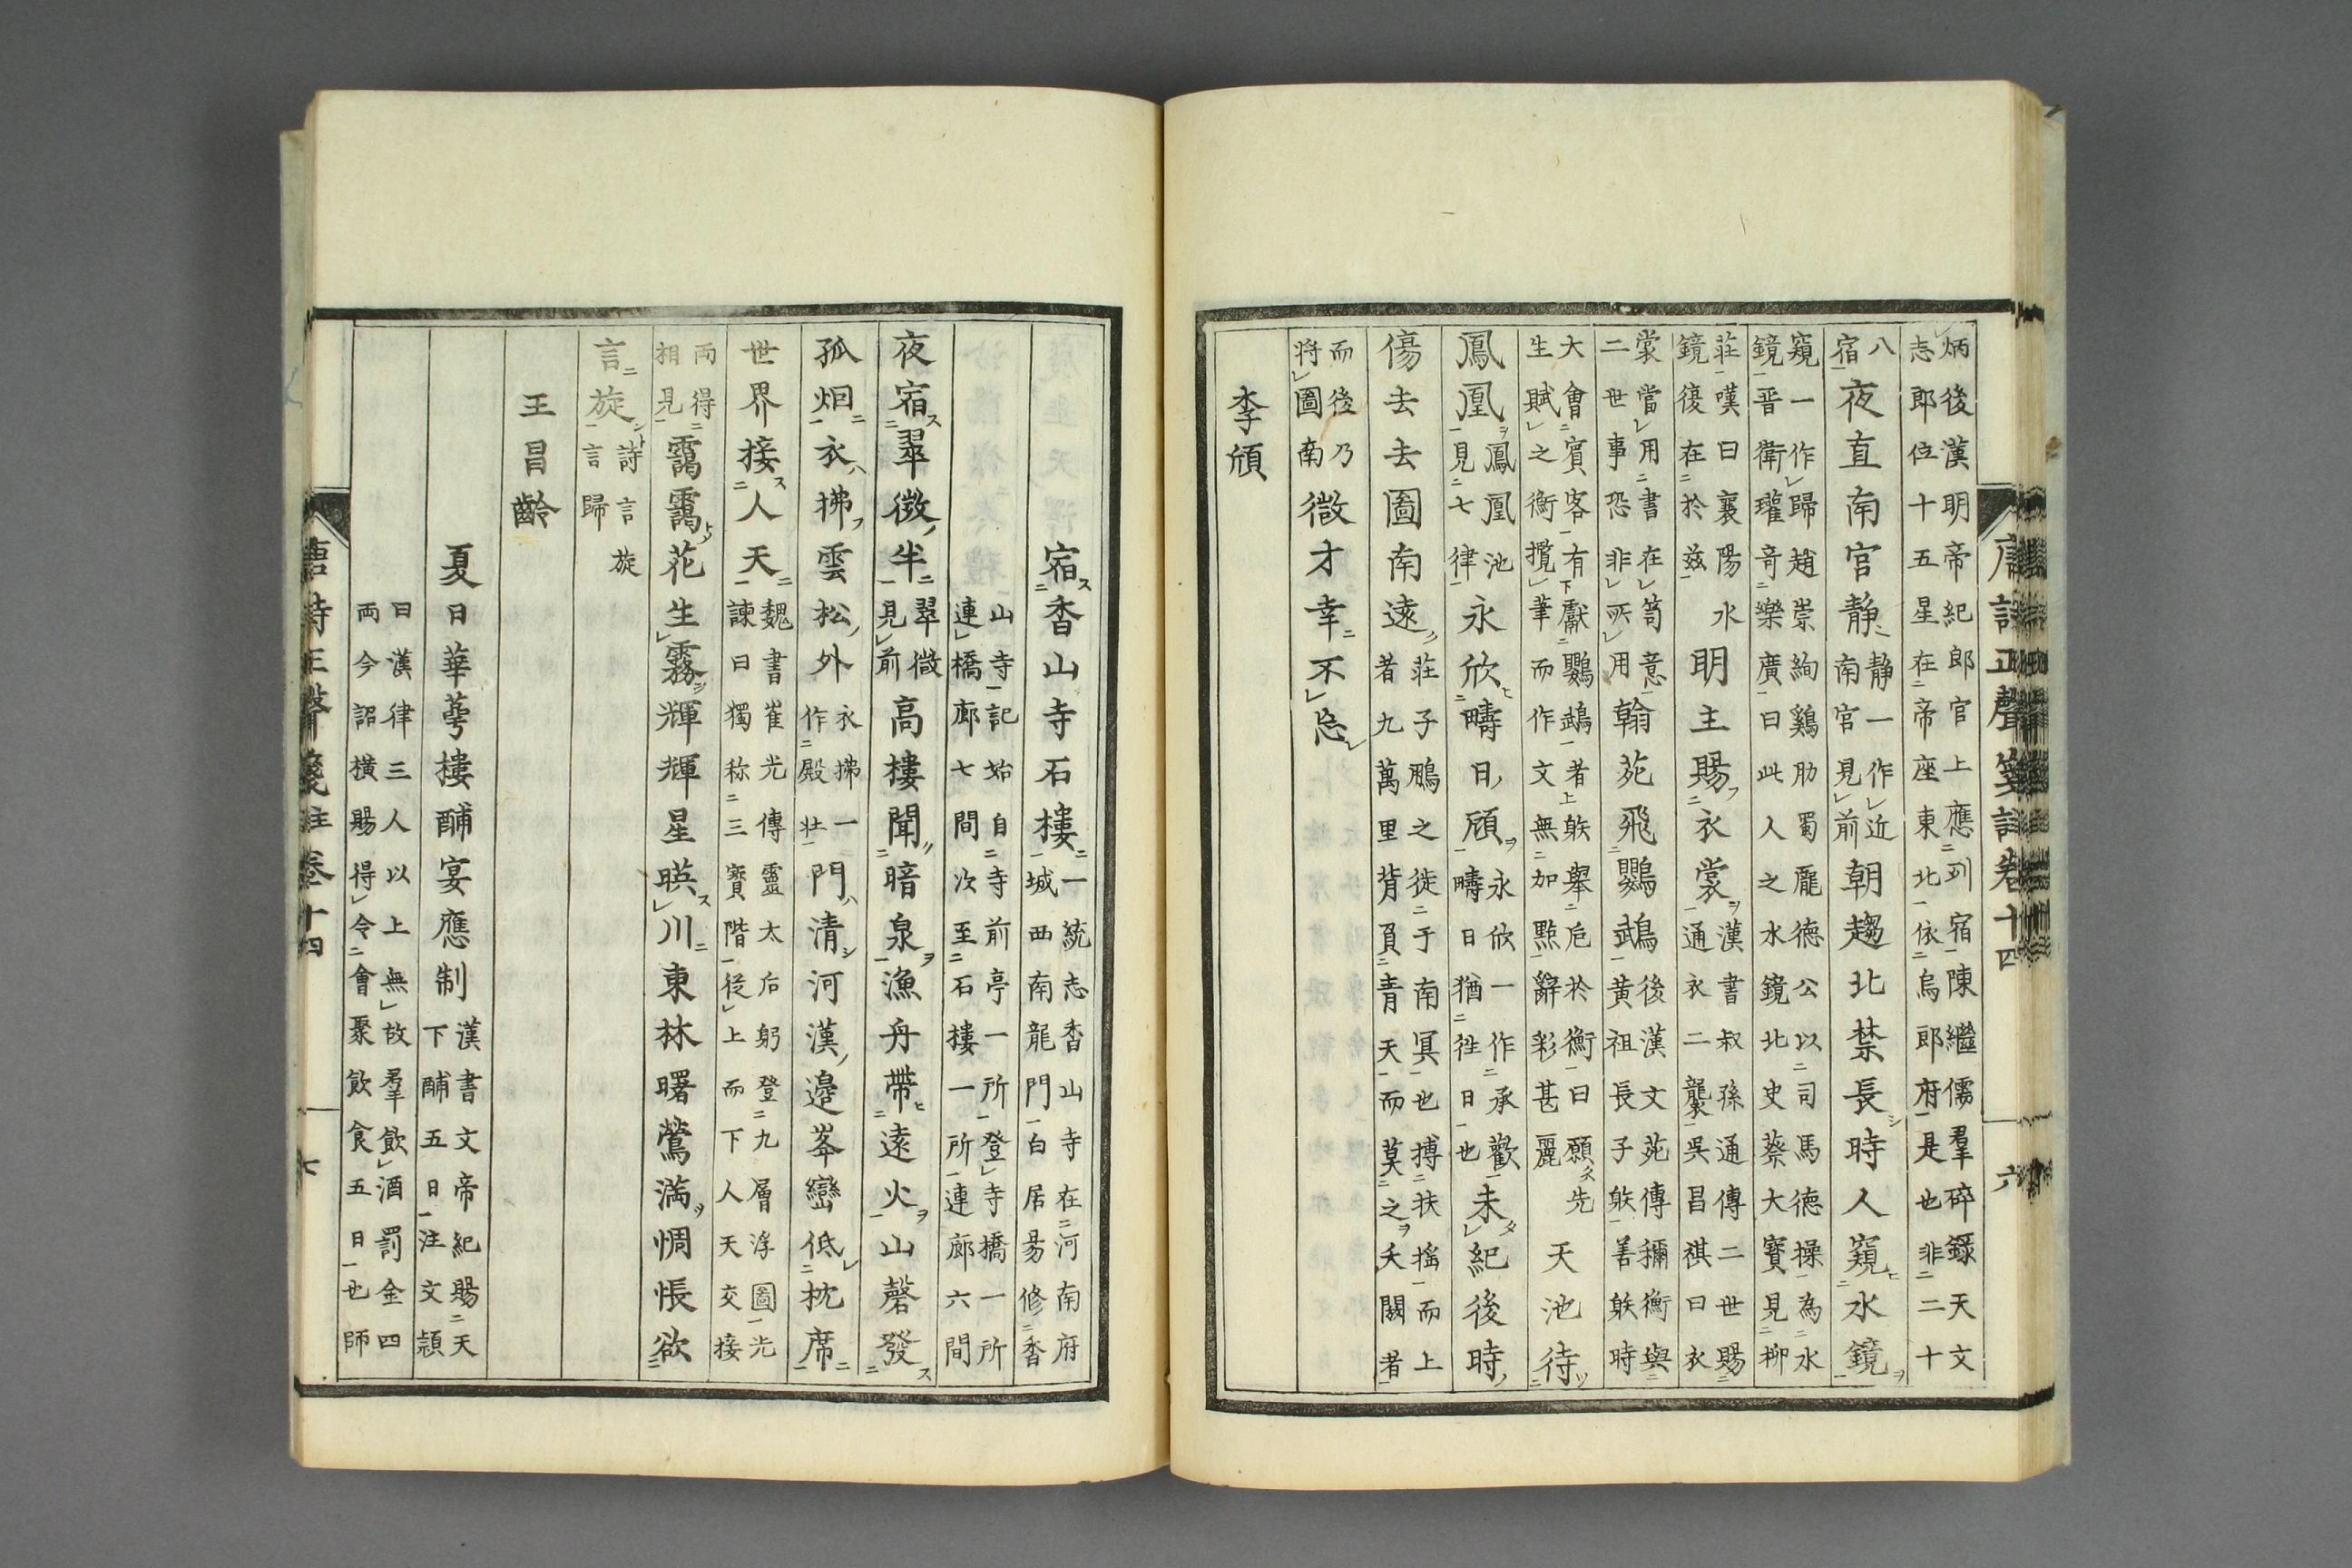 唐詩正聲箋註卷十四　六
炳後漢明帝紀郎官上應列宿陳繼儒羣碎錄天文
志郎位十五星在帝座東北依烏郎府是也非二十
八宿夜直南官靜靜一作近南官見前朝趨北禁長時人窺水鏡
窺一作歸趙崇絢鷄肋蜀龐德公以司馬德操為水
鏡晋衛瓘奇樂廣曰此人之水鏡北史蔡大寶見柳
莊嘆曰襄陽水鏡復在於兹明主賜衣裳漢書叔孫通傳二世賜通衣二襲吳昌祺曰衣
裳當用書在笥意二世事恐非所用翰苑飛鸚鵡後漢文苑傳禰衡與黄祖長子躲善躲時
大會賓客有獻鸚鵡者躲舉巵於衡曰願先生賦之衡攬筆而作文無加點辭彩甚麗天池待
鳳凰鳳凰池見七律永欣疇日顧永欣一作承歡疇日猶徃日也未紀後時
傷去去圖南遠莊子鵬之徙于南冥也搏扶搖而上者九萬里背負青天而莫之夭閼者
而後乃將圖南微才幸不忘
李頎
宿香山寺石樓一統志香山寺在河南府城西南龍門白居易修香
山寺記始自寺前亭一所登寺橋一所連橋廊七間次至石樓一所連廊六間
夜宿翠微半翠微見前高樓聞暗泉漁舟帶遠火山磬發
孤烟衣拂雲松外衣拂一作殿壯門清河漢邊峯巒低枕席
世界接人天魏書崔光傳靈太后躬登九層浮圖光諫曰獨称三寳階從上而下人天交接
兩得相見靄靄花生霧輝輝星暎川東林曙鶯滿惆悵欲
言旋詩言旋言歸
王昌齡
夏日華萼樓酺宴應制漢書文帝紀賜天下酺五日注文頴
曰漢律三人以上無故羣飲酒罰金四
兩今詔橫賜得令會聚飲食五日也師
唐詩正聲箋註卷十四　七